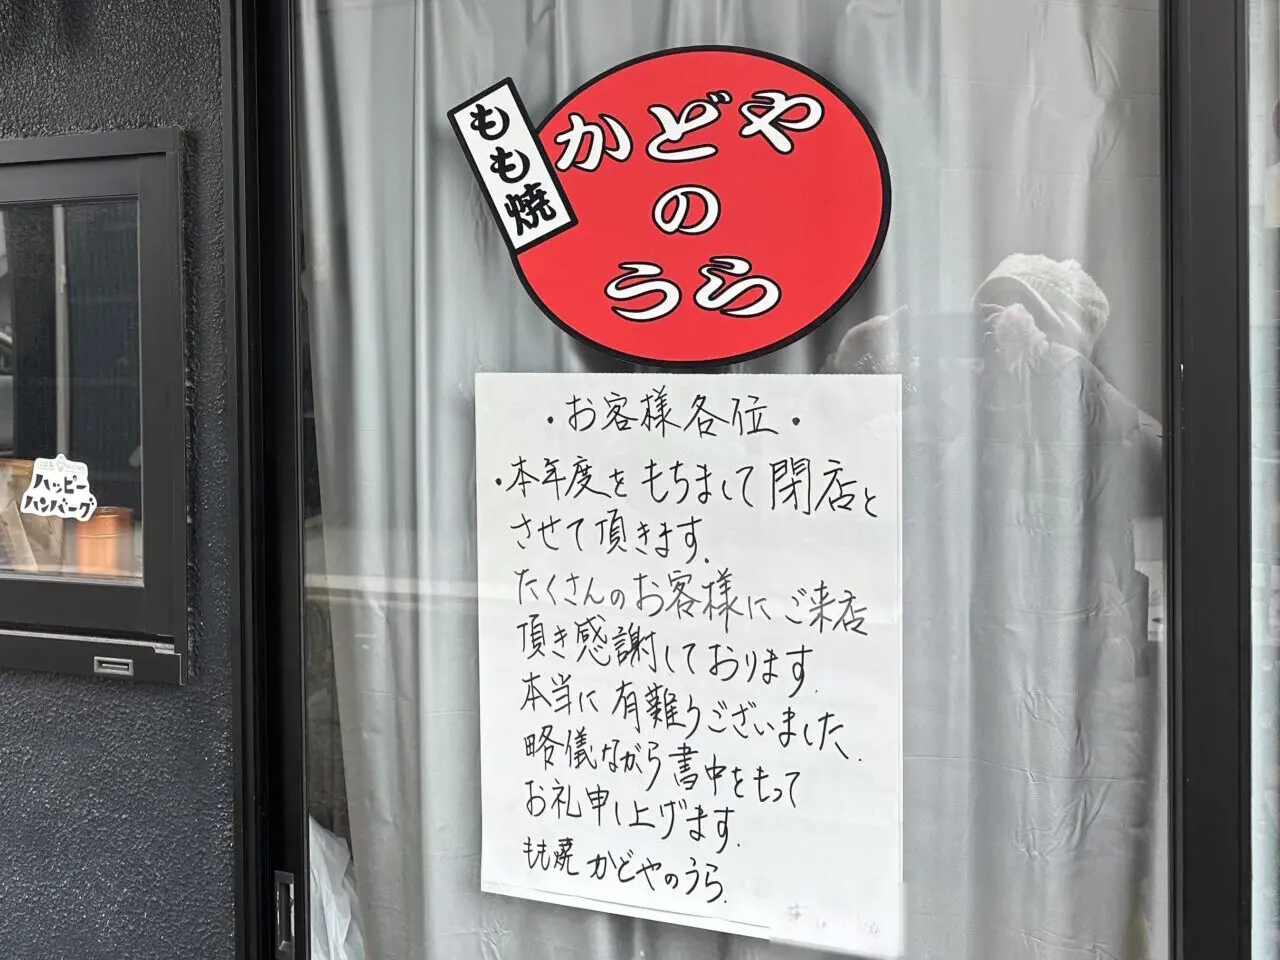 もも焼
かどや
の
うら
・お客様各位・
・本年度をもちまして閉店と
させて頂きます.
たくさんのお客様にご来店
頂き感謝しております.
本当に有難うございました.
略儀ながら書中をもって
お礼申し上げます.
もも焼 かどやのうら.
ハッピー
ハンバーグ